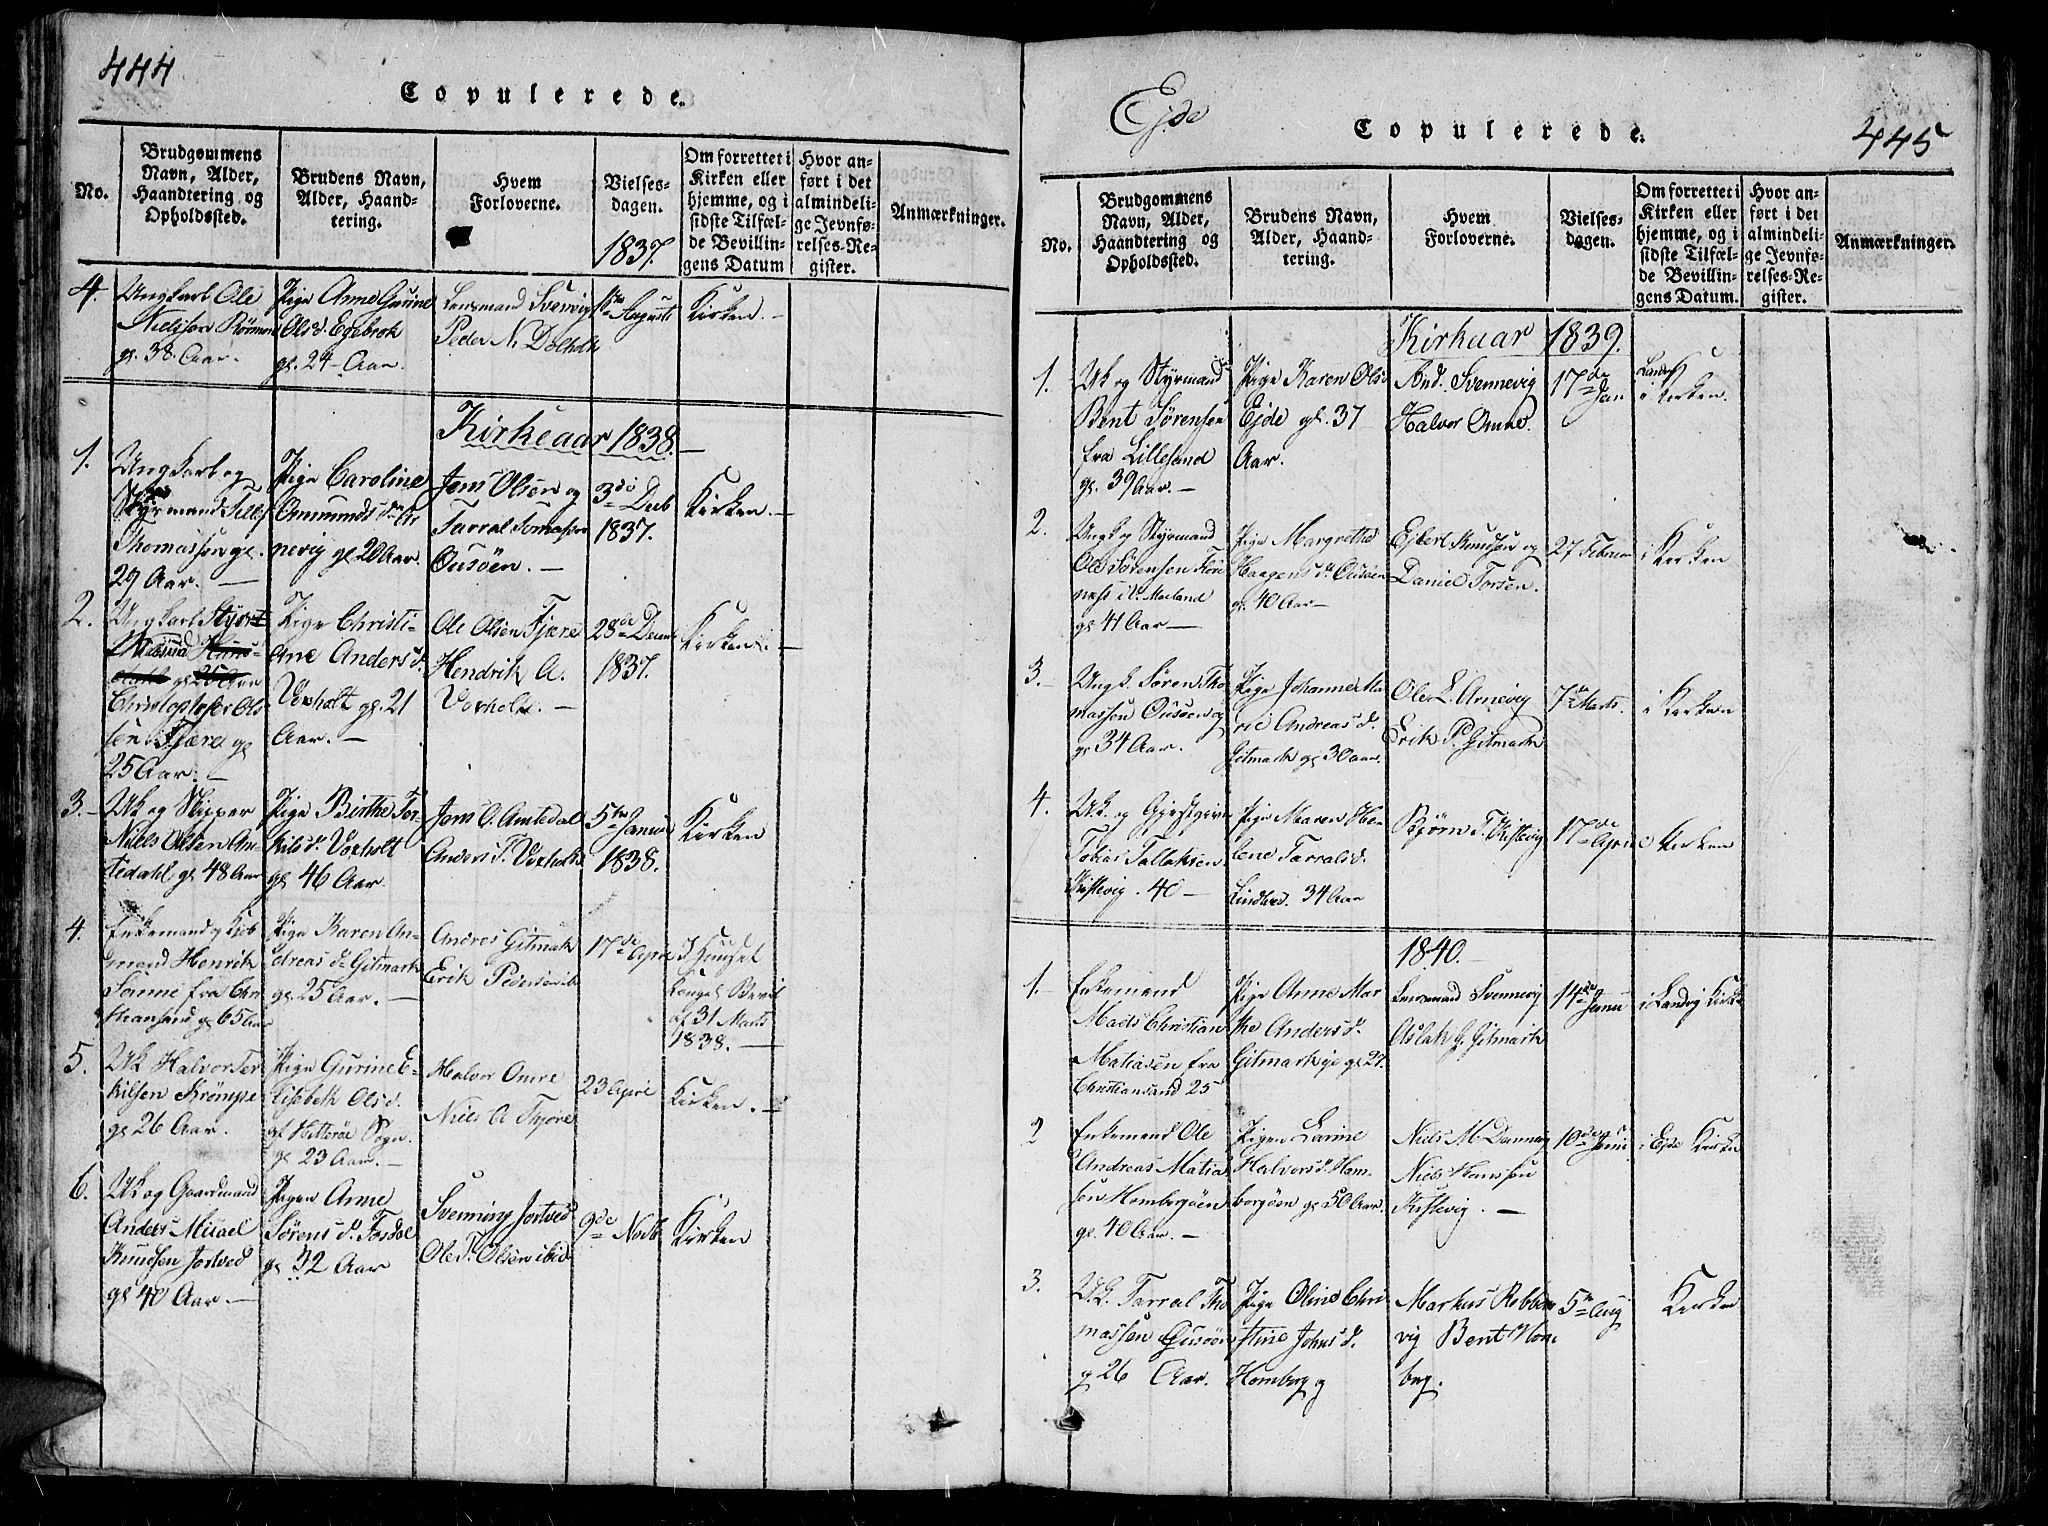 444
Copulerede.
No.
Brudgommens
Navn, Alder,
Haandtering og
Opholdssted.
Brudens Navn,
Alder, Haand-
tering.
Hvem
Forloverne.
Vielses-
dagen.
1837.
Om forrettet i
Kirken eller
hjemme, og i
sidste Tilfæl-
de Bevillin-
gens Datum
Hvor an-
ført i det
almindeli-
ge Jevnfø-
relses-Re-
gister.
Anmærkninger.
4.
Ungkarl Ole
Nielssen
gl. 38. Aar.
Pige Anne Gurine
Olsd. Egebrok
gl. 24 Aar
Lensmand Svenvig
Peder N. Dolholt
Augusti
Kirken.
Kirkeaar 1838.
1.
Ungkarl og
Styrmand
Thomassen gl.
29 Aar.
Pige Caroline
Amunds dr Ar
nevig gl 20 Aar.
Jens Olsen og
Tarral Tomassen
Ousöen.
3de Decb
1837.
Kirken.
2.
Ungkarl
Christopher Ols
sen Fjære gl
25 Aar.
Pige Christi-
ane Anders d.
Voxholt gl. 21
Aar.
Ole Olsen Fjære
Hendrik A.
Voxholt.
28de Decem
1837.
Kirken.
3.
UK og Skipper
Niels Olsen Am-
tedahl gl 48 Aar
Pige Birthe Tor-
kils d. Voxholt
gl 46 Aar.
Jens O. Amtedal
Anders T. Voxholt
5te Janua
1838.
Kirken
4.
Enkemand og Kiöb
mand Henrik
fra Chri
stiansand gl 65 Aar
Pige Karen An-
dreas dr Gitmark
gl 25 Aar.
Andres Gitmark
Erik Pedersen ib
17de Apri
I Huuset
Kongel Bevil
af 31 Marts
1838.
5.
UK Halvor Ter
kilsen Krömpe
gl 26 Aar.
Pige Gurine E-
lisebeth Ols d.
af Hitteröe Sogn.
gl 23 Aar.
Halvor Omre
Niels A Fjære
23 April
Kirken.
6.
UK og Gaardmand
Anders Micael
Knudsen Jortved
gl 40 Aar.
Pigen Anne
Sörens d. Fosdal
gl 32 Aar
Svenning Jortved
Ole T. Olsen ibid
9de Novb
Kirken
Ejde
Copulerede.
445
No.
Brudgommens
Navn, Alder,
Haandtering og
Opholdssted.
Brudens Navn,
Alder, Haand-
tering.
Hvem
Forloverne.
Vielses-
dagen.
Om forrettet i
Kirken eller
hjemme, og i
sidste Tilfæl-
de Bevillin-
gens Datum.
Hvor an-
ført i det
almindeli-
ge Jevnfø-
relses-Re-
gister.
Anmærkninger.
Kirkeaar 1839.
1.
UK og Styrmand
Bent Sörensen
fra Lillesand
gl. 39 Aar.
Pige Karen Olsd
Ejde gl. 37
Aar.
And. Svennevig
Halvor Omre.
17de Jan
i Kirken.
2.
Ungk og Styrmand
Ole Sörensen
gl 41 Aar
Pige Margrethe
Haagens dr Ousöen
gl. 40 Aar
Ejlert Knudsen og
Daniel Torsen.
27 Februar
i Kirken
3.
Ungk. Sören Tho
massen Ousöen
gl 34 Aar.
Pige Johanne Ma
rie Andreas d.
Gitmark gl 30 aar.
Ole L. Arnevig
Erik P. Gitmark
7de Marts.
i Kirken
4.
UK. og Gjestgiver
Tobias Tallaksen
Kistevig. 40
Pige Maren He-
lene Tarrals d.
34 Aar
Björn T. Kistevig
17de April
Kirken
1840.
1.
Enkemand
Mads Christian
Matiasen fra
Christiansand 25
Pige Anne Mar
the Anders d.
Gitmark gl 27.
Lensmand Svennevig
Aslak G. Gitmark
14de Janu
i Landvig Kirke
2
Enkemand Ole
Andreas Matia
sen Homborgöen
gl. 40 Aar.
Pigen Larine
Halvors d. Hom-
borgöen gl 50 Aar.
Niels M Dannevig
Niels Hanssen
Kistevig.
10de Juni
i Ejde Kirke
3.
U.K. Tarral Tho
massen Ousöen
g 26 Aar.
Pige Oline Chri
stine Johns d.
Homborg g
Markus Ribben
vig Bent Hom
borg.
5te Aug
Kirken